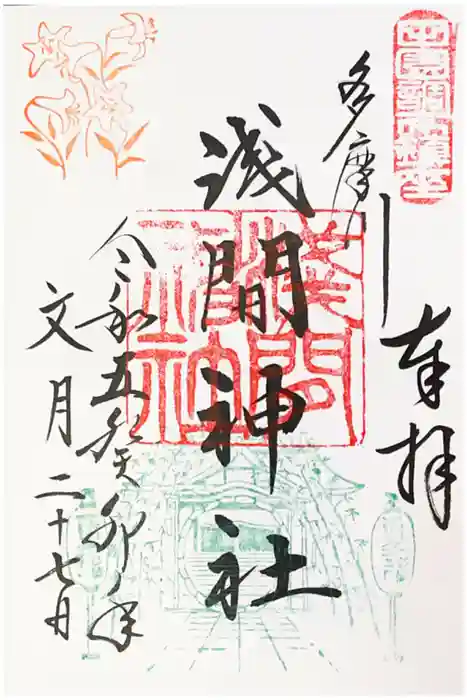 奉拝
多摩川
浅間神社
令和五年癸卯年
文月二十七日
浅間神社